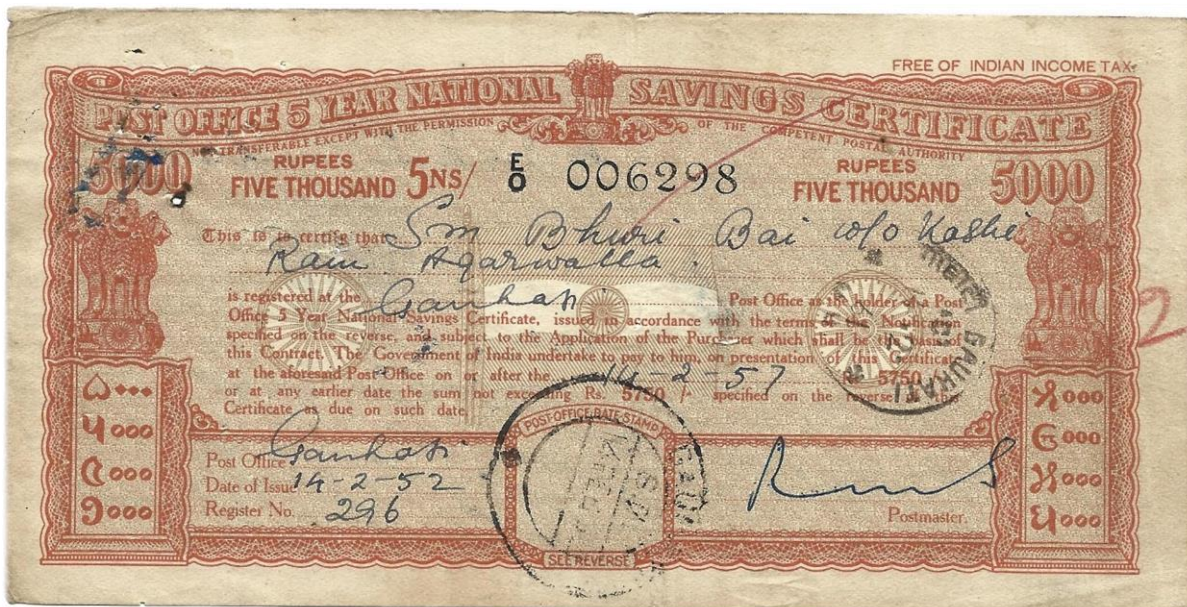 FREE OF INDIAN INCOME TAX
POST OFFICE 5 YEAR NATIONAL SAVINGS CERTIFICATE
TRANSFERABLE EXCEPT WITH THE PERMISSION OF THE COMPETENT POSTAL AUTHORITY
5000 RUPEES FIVE THOUSAND 5NS/ E/O 006298 RUPEES FIVE THOUSAND 5000
This is to certify that Sm Bhuri Bai w/o Kashi
Ram Agarwalla.
is registered at the Gauhati Post Office as the holder of a Post
Office 5 Year National Savings Certificate, issued in accordance with the terms of the Notification
specified on the reverse, and subject to the Application of the Purchaser which shall be the basis of
this Contract. The Government of India undertake to pay to him, on presentation of this Certificate
at the aforesaid Post Office on or after the 14-2-57 Rs 5750/-
or at any earlier date the sum not exceeding Rs. 5750 /- specified on the reverse of this
Certificate as due on such date.
POST-OFFICE DATE-STAMP
Post Office Gauhati
Date of Issue 14-2-52
Register No. 296
Postmaster.
SEE REVERSE
GAUHATI
2
۵۰۰۰
५०००